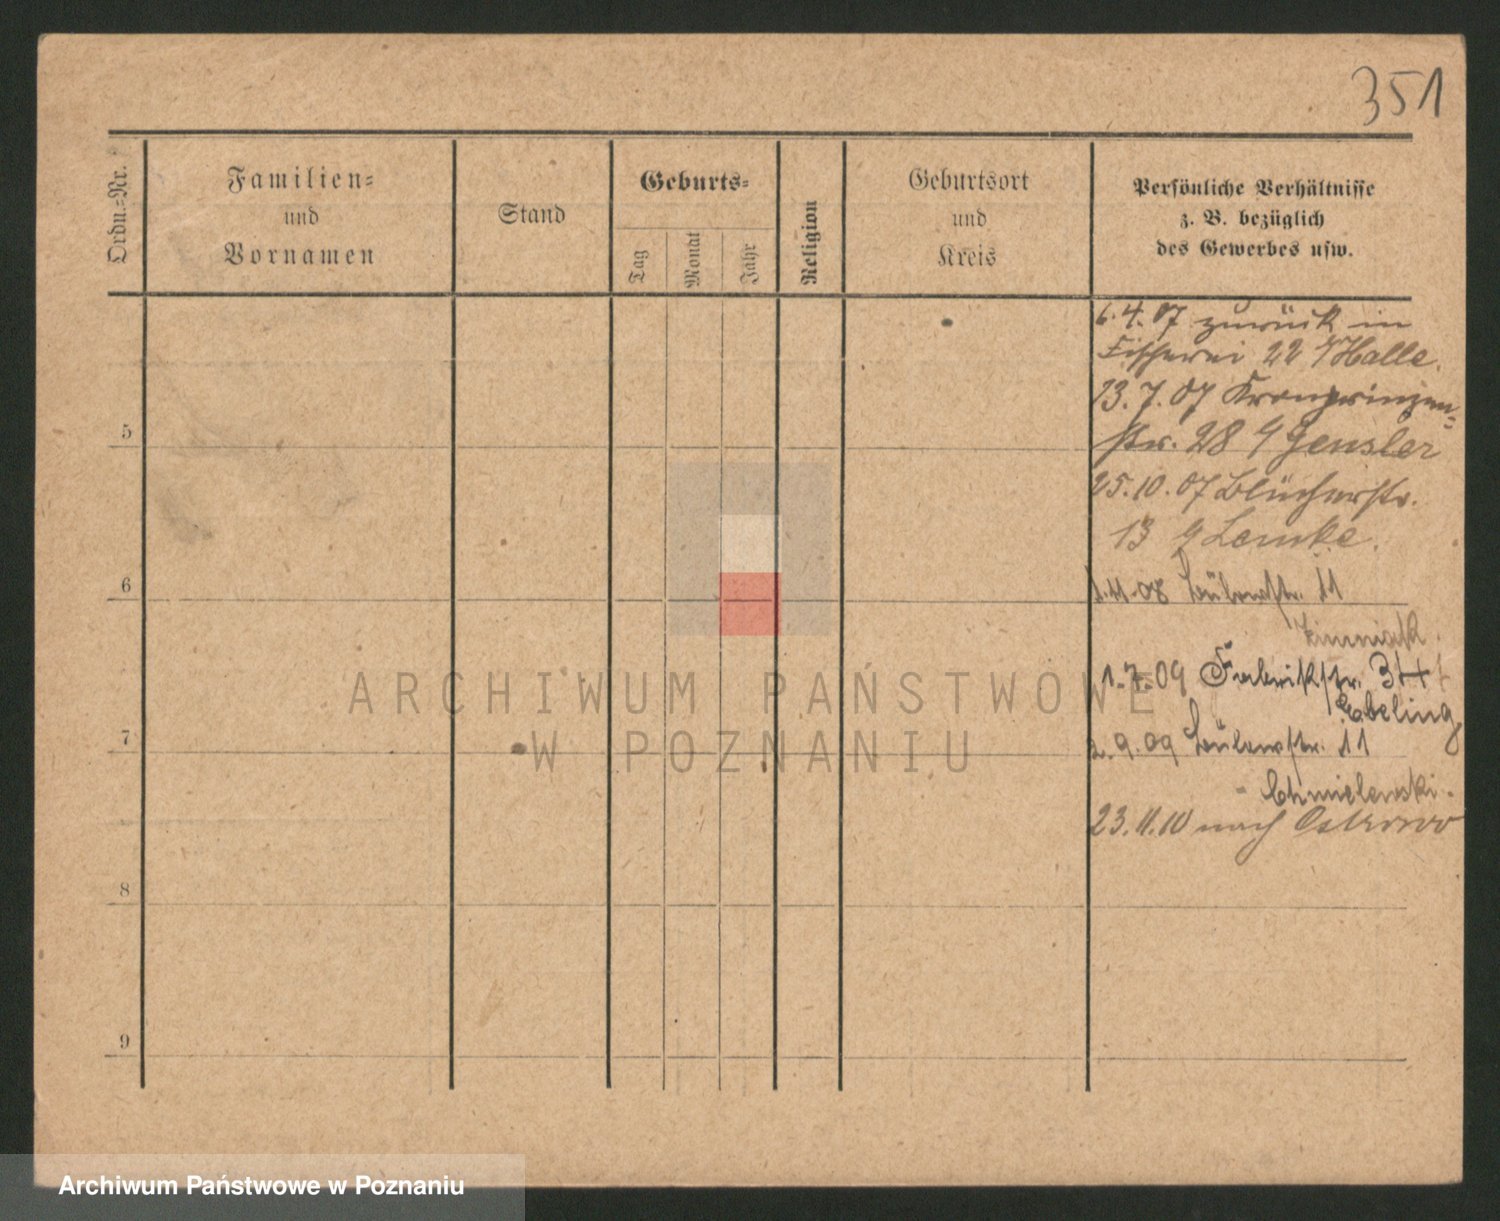 351
Ordn.-Nr.
Familien-
und
Vornamen
Stand
Geburts-
Tag
Monat
Jahr
Religion
Geburtsort
und
Kreis
Persönliche Verhältnisse
z. B. bezüglich
des Gewerbes usw.
6.4.07 zurück in
Fischerei 22 Halle.
13.7.07 Kronprinzen-
str. 28 Gensler
5
25.10.07 Blücherstr.
13 Lemke.
6
1.11.08 11
1.7.09 Fabrikstr. 34
Ebeling
7
2.9.09 11
Chmielewski.
23.11.10 nach Ostrowo
8
9
ARCHIWUM PAŃSTWOWE
W POZNANIU
Archiwum Państwowe w Poznaniu